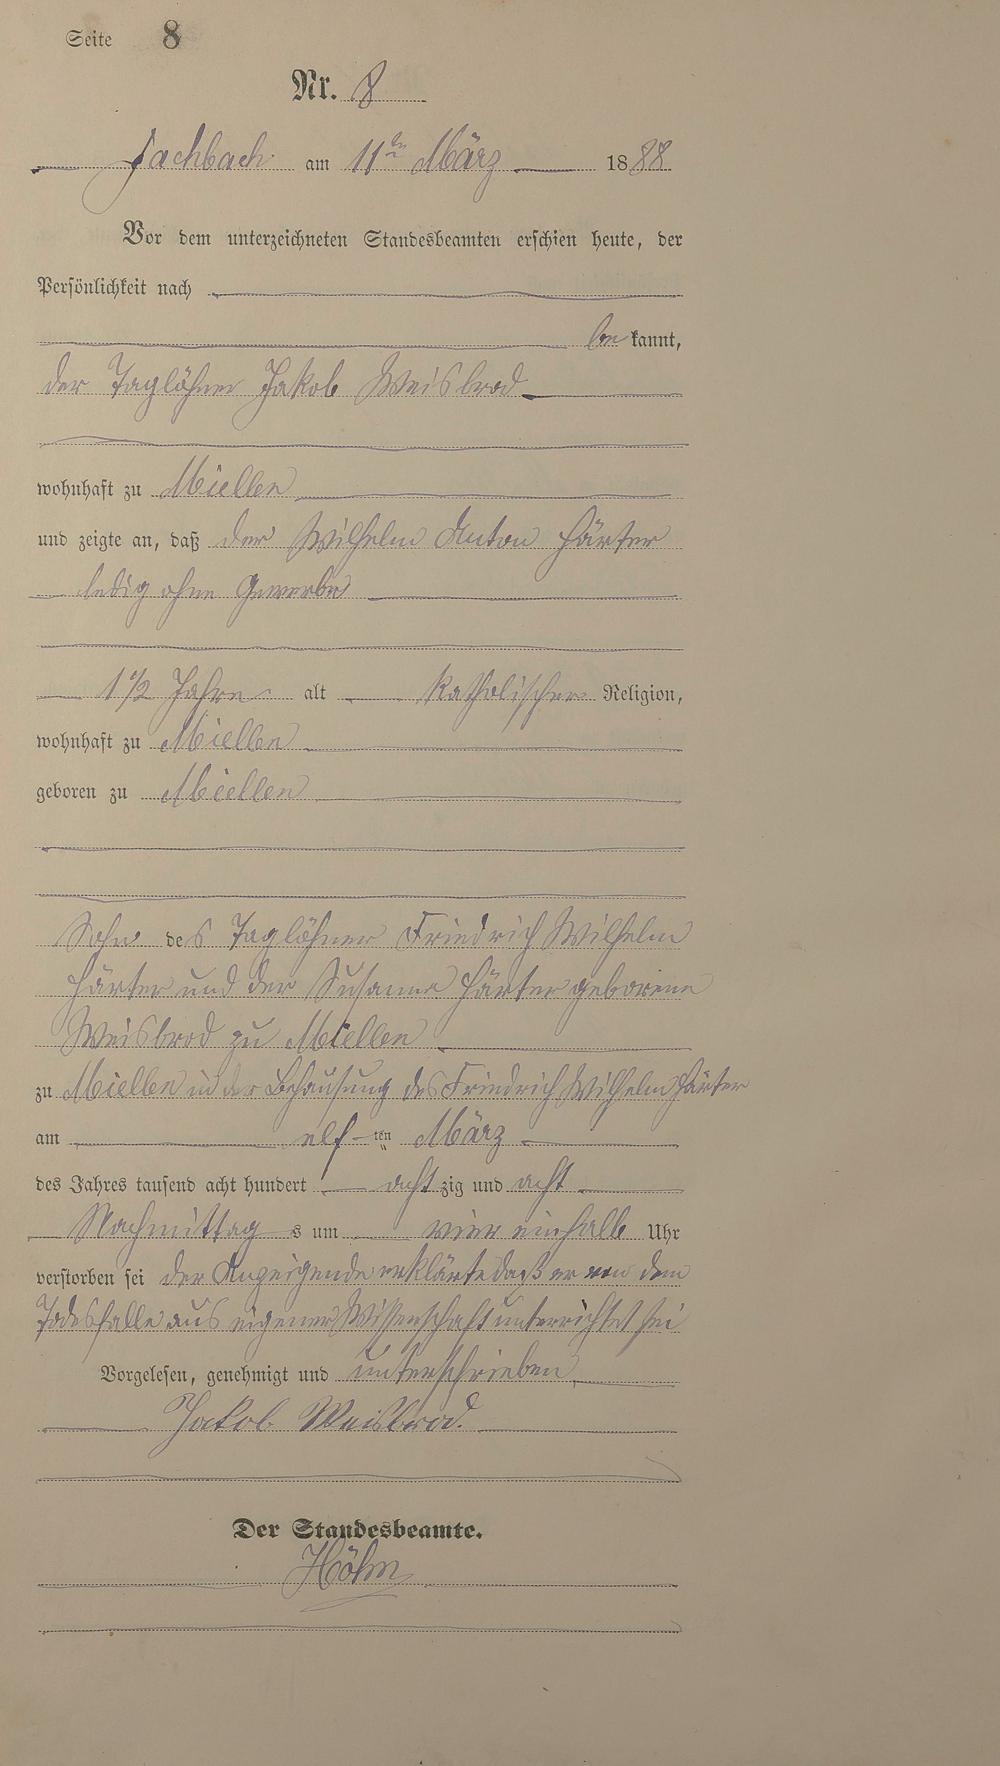 Seite 8
Nr. 8
Fachbach am 11ten März 1888
Vor dem unterzeichneten Standesbeamten erschien heute, der
Persönlichkeit nach
bekannt,
der Taglöhner Jakob Weisbrod
wohnhaft zu Miellen
und zeigte an, daß der Wilhelm Anton Härter
ledig ohne Gewerbe
1 1/2 Jahre alt katholischer Religion,
wohnhaft zu Miellen
geboren zu Miellen
Sohn des Taglöhner Friedrich Wilhelm
Härter und der Susanna Härter geborene
Weisbrod zu Miellen
zu Miellen in der Behausung des Friedrich Wilhelm Härter
am elf-ten März
des Jahres tausend acht hundert achtzig und acht
Nachmittags um vier einhalb Uhr
verstorben sei der Anzeigende erklärte daß er von dem
Todesfalle aus eigener Wissenschaft unterrichtet sei
Vorgelesen, genehmigt und unterschrieben
Jakob Weisbrod.
Der Standesbeamte.
Höhn